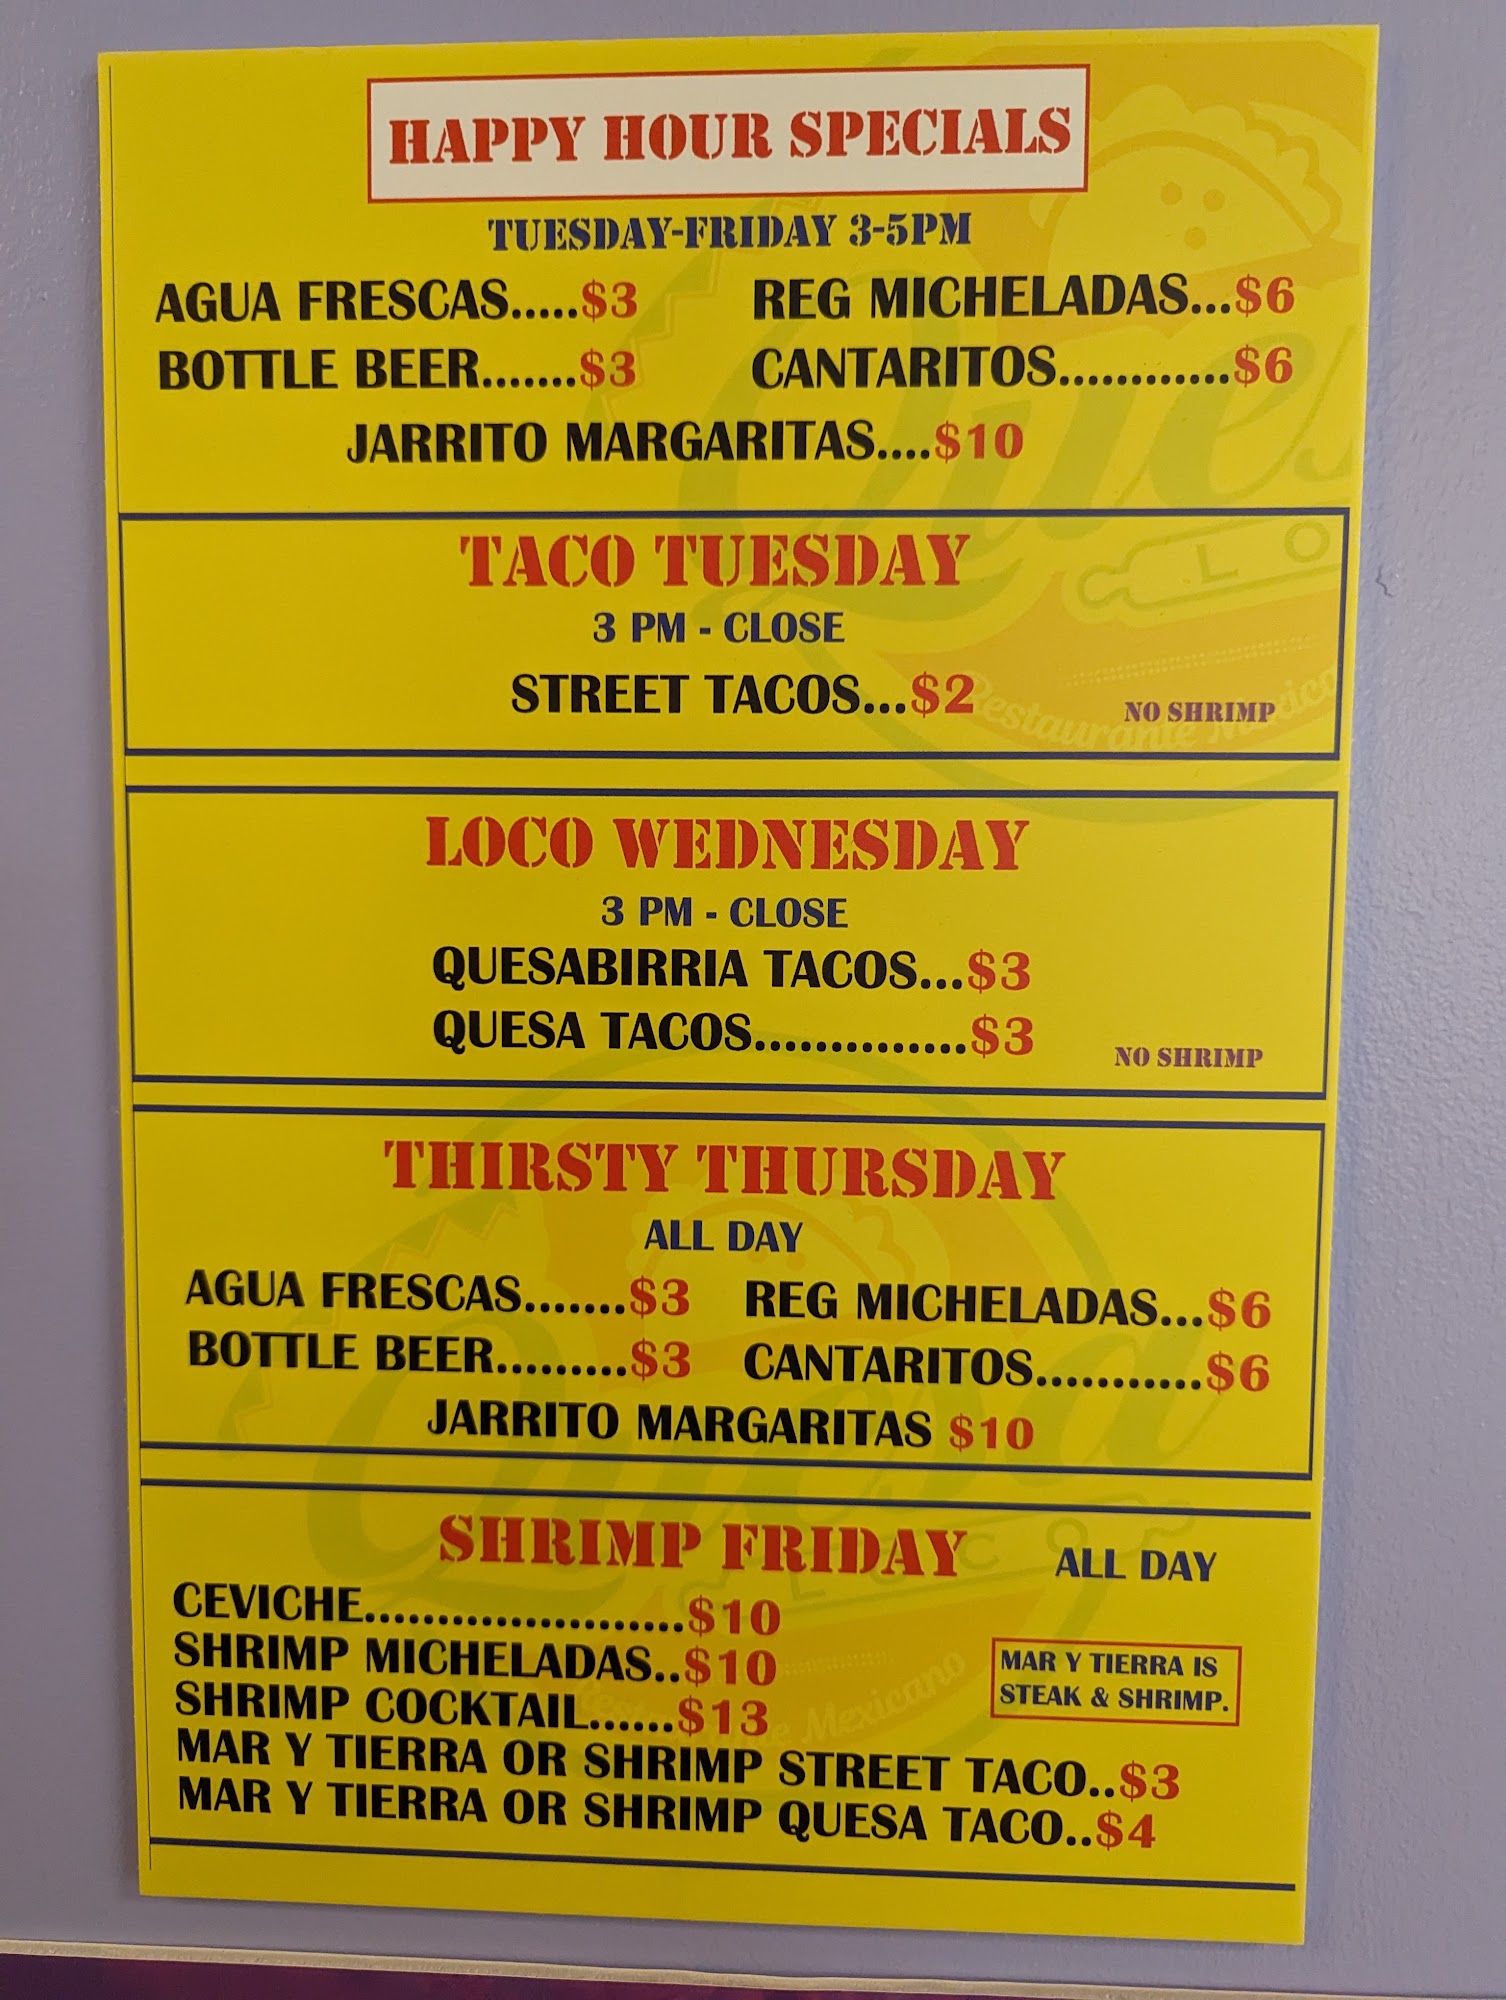 HAPPY HOUR SPECIALS
TUESDAY-FRIDAY 3-5PM
AGUA FRESCAS.....$3 REG MICHELADAS...$6
BOTTLE BEER.......$3 CANTARITOS............$6
JARRITO MARGARITAS....$10
TACO TUESDAY
3 PM - CLOSE
STREET TACOS...$2
NO SHRIMP
LOCO WEDNESDAY
3 PM - CLOSE
QUESABIRRIA TACOS...$3
QUESA TACOS..............$3
NO SHRIMP
THIRSTY THURSDAY
ALL DAY
AGUA FRESCAS.......$3 REG MICHELADAS...$6
BOTTLE BEER.........$3 CANTARITOS...........$6
JARRITO MARGARITAS $10
SHRIMP FRIDAY ALL DAY
CEVICHE......................$10
SHRIMP MICHELADAS..$10
SHRIMP COCKTAIL......$13
MAR Y TIERRA IS
STEAK & SHRIMP.
MAR Y TIERRA OR SHRIMP STREET TACO..$3
MAR Y TIERRA OR SHRIMP QUESA TACO..$4
Quesa
LOCO
Restaurante Mexicano